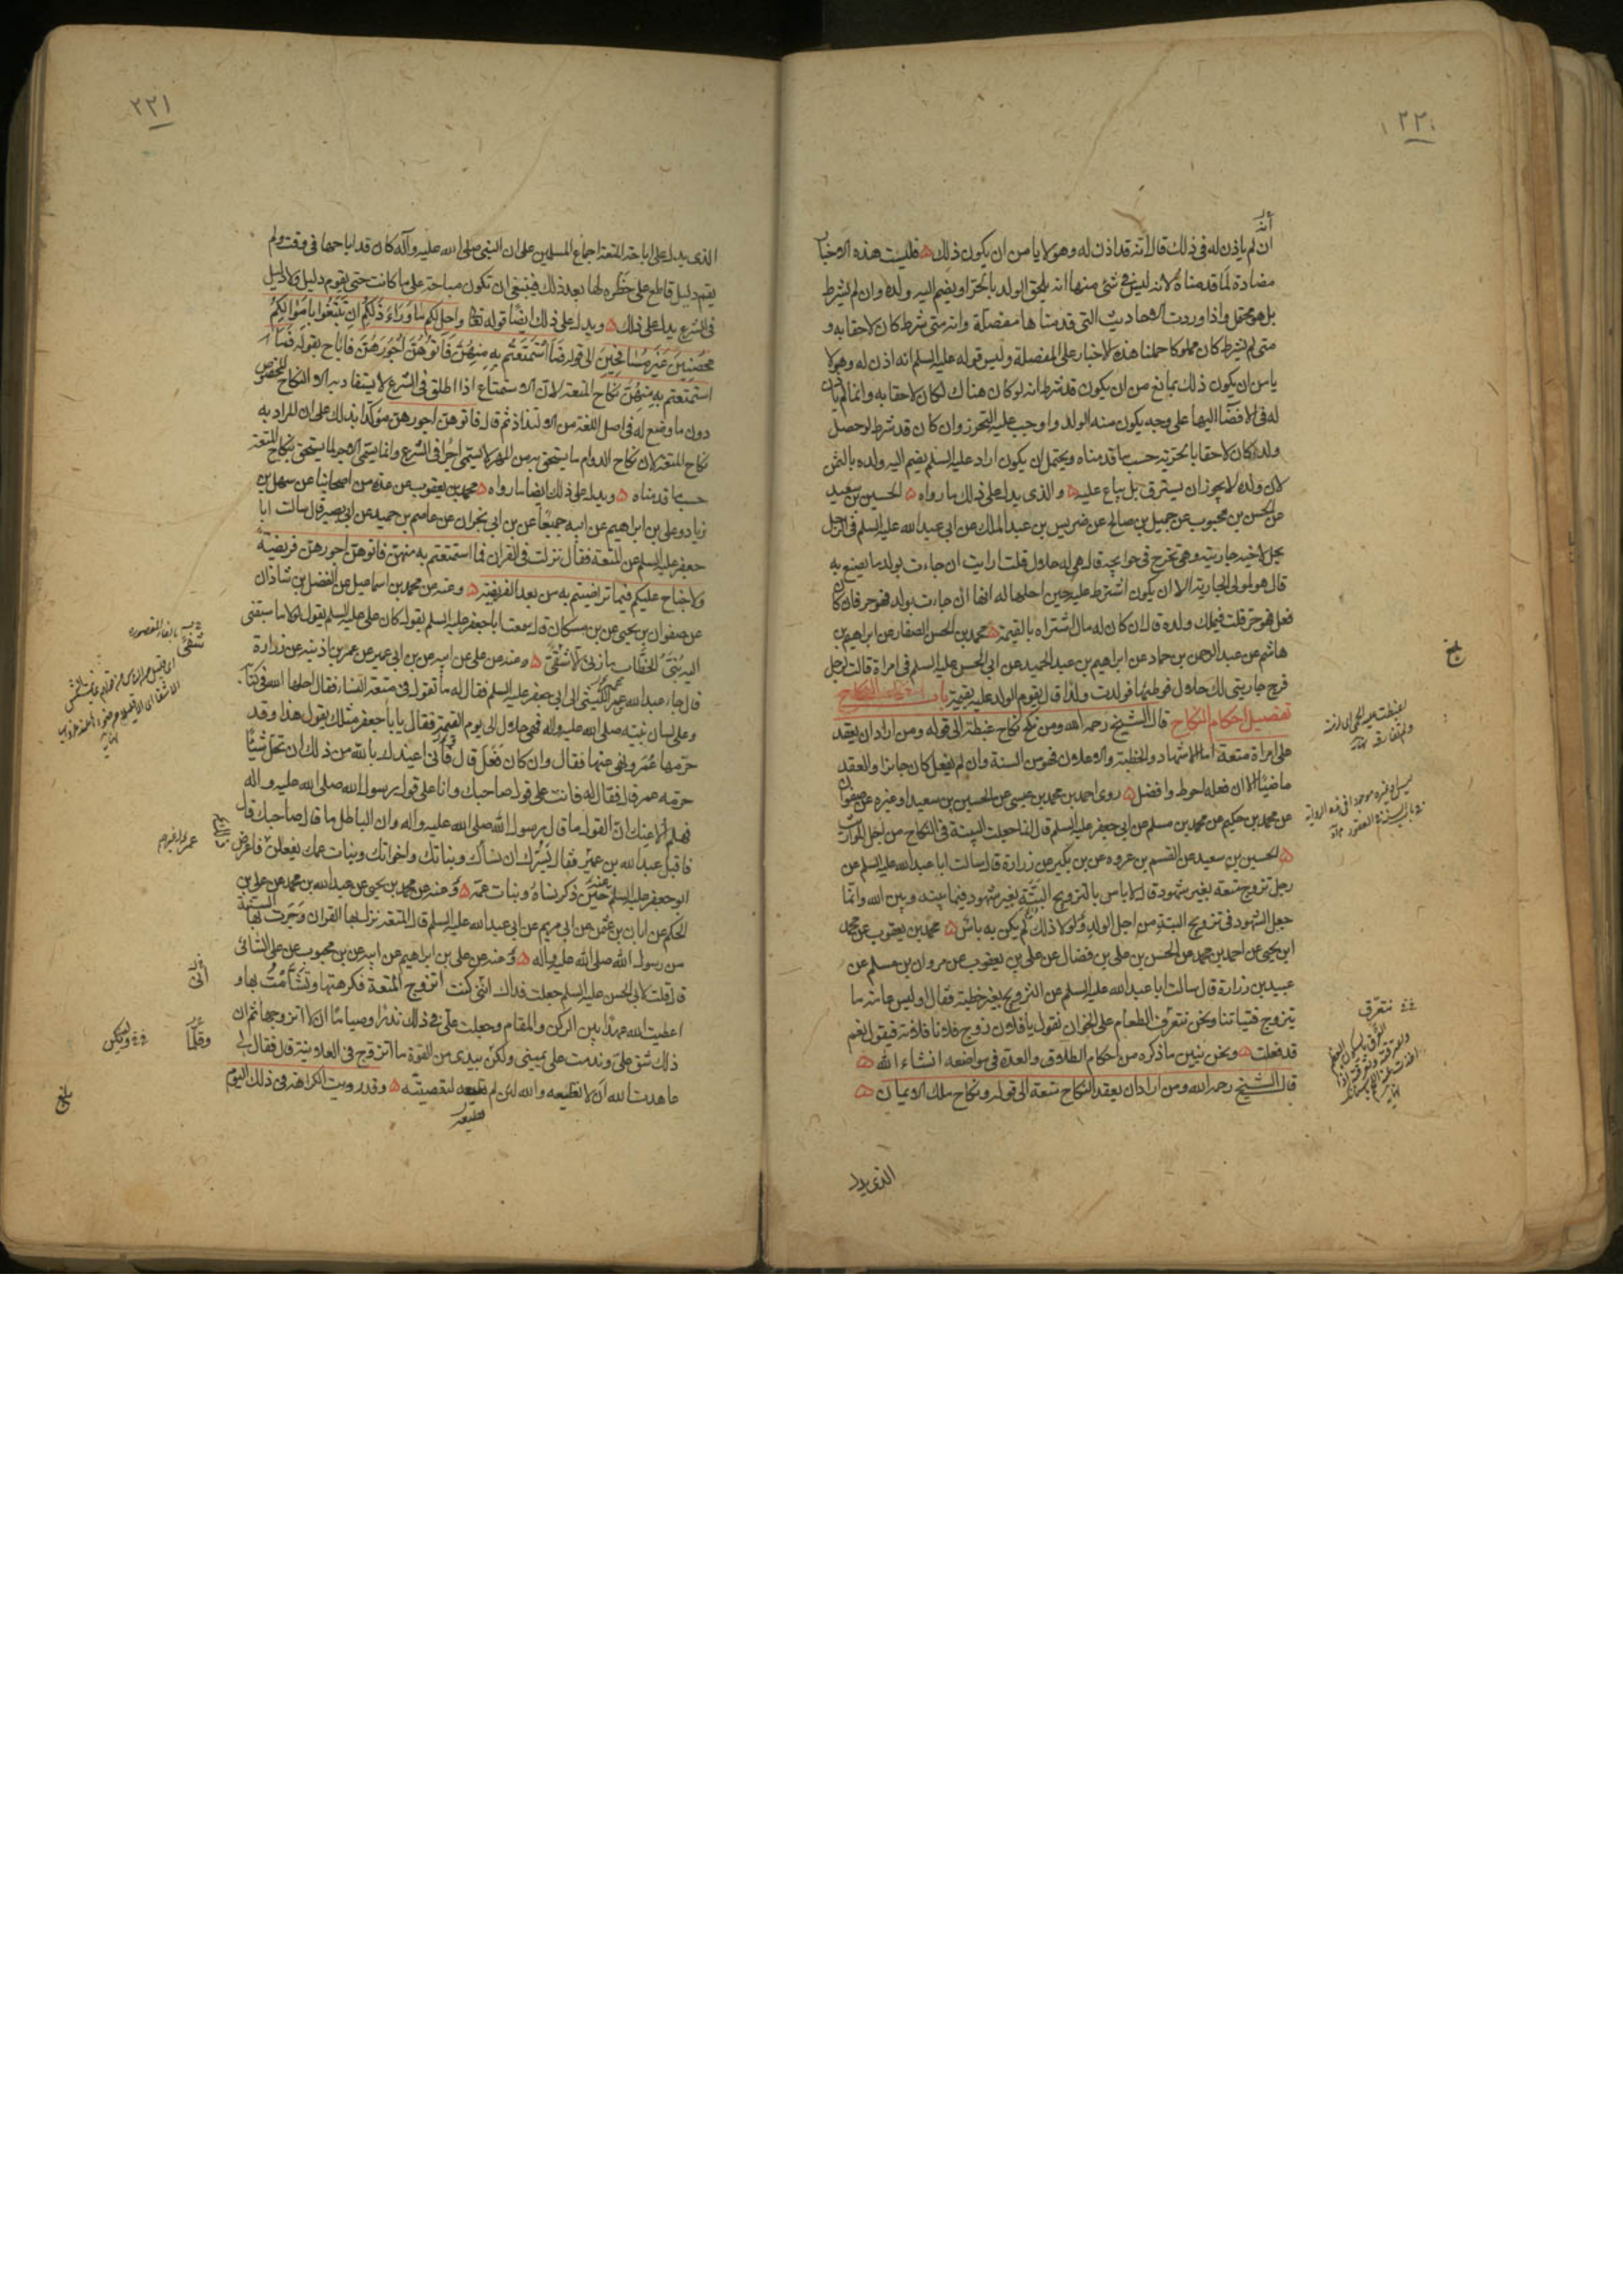 ٢٢٠
ان لم ياذن له في ذلك قال انه قد اذن له وهو لا يامن ان يكون ذلك فليست هذه الاخبار
مضادة لما قدمناه لانه ليس في شئ منها انه يلحق الولد بالحرا ويضم اليه ولده وان لم يشرط
بل هو محتمل واذا وردت الاحاديث التي قدمناها مفصلة وانه متى شرط كان لاحقا به و
متى لم يشرط كان مملوكا حملنا هذه الاخبار على المفصلة وليس قوله عليه السلم انه اذن له وهو لا
يامن ان يكون ذلك بمانع من ان يكون قد شرط انه لو كان هناك لكان لاحقا به وانما لم ياذن
له في الافضا اليها على وجه يكون منه الولد واوجب عليه التحرز وان كان قد شرط لو حصل
ولد لكان لاحقا بالحرية حسب ما قدمناه ويحتمل ان يكون اراد عليه السلم يضم اليه ولده بالثمن
لان ولده لا يجوز ان يسترق بل يباع عليه والذي يدل على ذلك ما رواه الحسين بن سعيد
عن الحسن بن محبوب عن جميل بن صالح عن ضريس بن عبد الملك عن ابي عبد الله عليه السلم في الرجل
يحل لاخيه جاريته وهي تخرج في حوايجه قال هي له حلال قلت ارايت ان جاءت بولد ما يصنع به
قال هو لمولى الجارية الا ان يكون اشترط عليه حين احلها له انها ان جاءت بولد فهو حر فان كان
فعل فهو حر قلت فيملك ولده قال ان كان له مال اشتراه بالقيمة محمد بن الحسن الصفار عن ابراهيم بن
هاشم عن عبد الرحمن بن حماد عن ابراهيم بن عبد الحميد عن ابي الحسن عليه السلم في امراة قالت لرجل
فرج جاريتي لك حلال فوطيها فولدت ولدا قال يقوم الولد عليه بقيمته باب
تفصيل احكام النكاح قال الشيخ رحمه الله ومن نكح نكاح غبطة الى قوله ومن اراد ان يعقد
على امراة متعة اما الاشهاد والخطبة والاعلان فهو من السنة وان لم يفعل كان جائزا والعقد
ماضيا الا ان فعله احوط وافضل روى احمد بن محمد بن عيسى عن الحسين بن سعيد او غيره عن صفوان
عن محمد بن حكيم عن محمد بن مسلم عن ابي جعفر عليه السلم قال انما جعلت البينة في النكاح من اجل المواريث
الحسين بن سعيد عن القسم بن عروه عن بن بكير عن زرارة قال سالت ابا عبد الله عليه السلم عن
رجل تزوج متعة بغير شهود قال لا باس بالتزويج البتة بغير شهود فيما بينه وبين الله وانما
جعل الشهود في تزويج البتة من اجل الولد ولولا ذلك لم يكن به باس محمد بن يعقوب عن محمد
ابن يحيى عن احمد بن محمد عن الحسن بن علي بن فضال عن علي بن يعقوب عن مروان بن مسلم عن
عبيد بن زرارة قال سالت ابا عبد الله عليه السلم عن التزويج بغير خطبة فقال اوليس عامة ما
يتزوج فتياتنا ونحن نتعرق الطعام على الخوان نقول يا فلان زوج فلانا فلانة فيقول نعم
قد فعلت ونحن نبين ما ذكره من احكام الطلاق والعدة في مواضعه انشاء الله
قال الشيخ رحمه الله ومن اراد ان يعقد النكاح متعة الى قوله ونكاح ملك الايمان
الذي يدل
بلغ
نتعرق
٢٢١
الذي يدل على اباحة المتعة اجماع المسلمين على ان النبي صلى الله عليه وآله كان قد اباحها في وقت ولم
يقم دليل قاطع على حظره لها بعد ذلك فينبغي ان تكون مباحة على ما كانت حتى يقوم دليل ولا دليل
في الشرع يدل على ذلك ويدل على ذلك ايضا قوله تعالى واحل لكم ما وراء ذلكم ان تبتغوا باموالكم
محصنين غير مسافحين الى قوله فما استمتعتم به منهن فاتوهن اجورهن فاباح بقوله فما
استمتعتم به منهن نكاح المتعة لان الاستمتاع اذا اطلق في الشرع لا يستفاد به الا النكاح المخصوص
دون ما وضع له في اصل اللغة من الالتذاذ ثم قال فاتوهن اجورهن موكدا بذلك على ان المراد به
نكاح المتعة لان نكاح الدوام ما يستحق به من المهر لا يسمى اجرا في الشرع وانما يسمى الاجر لما يستحق بنكاح المتعة
حسب ما قدمناه ويدل على ذلك ايضا ما رواه محمد بن يعقوب عن عدة من اصحابنا عن سهل بن
زياد وعلي بن ابراهيم عن ابيه جميعا عن بن ابي نجران عن عاصم بن حميد عن ابي بصير قال سالت ابا
جعفر عليه السلم عن المتعة فقال نزلت في القران فما استمتعتم به منهن فاتوهن اجورهن فريضة
ولا جناح عليكم فيما تراضيتم به من بعد الفريضة وعنه عن محمد بن اسماعيل عن الفضل بن شاذان
عن صفوان بن يحيى عن بن مسكان قال سمعت ابا جعفر عليه السلم يقول كان علي عليه السلم يقول لولا ما سبقني
اليه بنى الخطاب ما زنى الا شقي وعنه عن علي عن ابيه عن بن ابي عمير عن عمر بن اذينه عن زرارة
قال جاء عبد الله بن عمير الليثي الى ابي جعفر عليه السلم فقال له ما تقول في متعة النساء فقال احلها الله في كتابه
وعلى لسان نبيه صلى الله عليه واله فهي حلال الى يوم القيمة فقال يا با جعفر مثلك يقول هذا وقد
حرمها عمر ونهى عنها فقال وان كان فعل قال فاني اعيذك بالله من ذلك ان تحل شيئا
حرمه عمر قال فقال له فانت على قول صاحبك وانا على قول رسول الله صلى الله عليه واله
فهلم الاعنك ان القول ما قال رسول الله صلى الله عليه واله وان الباطل ما قال صاحبك قال
فاقبل عبد الله بن عمير فقال يسرك ان نساءك وبناتك واخواتك وبنات عمك يفعلن فاعرض
ابو جعفر عليه السلم عنه حين ذكر نساءه وبنات عمه وعنه عن محمد بن يحيى عن عبد الله بن محمد عن علي بن
الحكم عن ابان بن عثمن عن ابي مريم عن ابي عبد الله عليه السلم قال المتعة نزل بها القران وجرت بها السنة
من رسول الله صلى الله عليه واله وعنه عن علي بن ابراهيم عن ابيه عن بن محبوب عن علي السائي
قال قلت لابي الحسن عليه السلم جعلت فداك انني كنت اتزوج المتعة فكرهتها وتشأمت بها و
اعطيت الله عهدا بين الركن والمقام وجعلت علي في ذلك نذرا وصياما ان لا اتزوجها ثم ان
ذلك شق علي وندمت على يميني ولكن بيدي من القوة ما اتزوج في العلانية قال فقال لي
عاهدت الله ان لا تطيعه والله لئن لم تطعه لتعصينه وقد رويت الكراهة في ذلك اليوم
بلغ